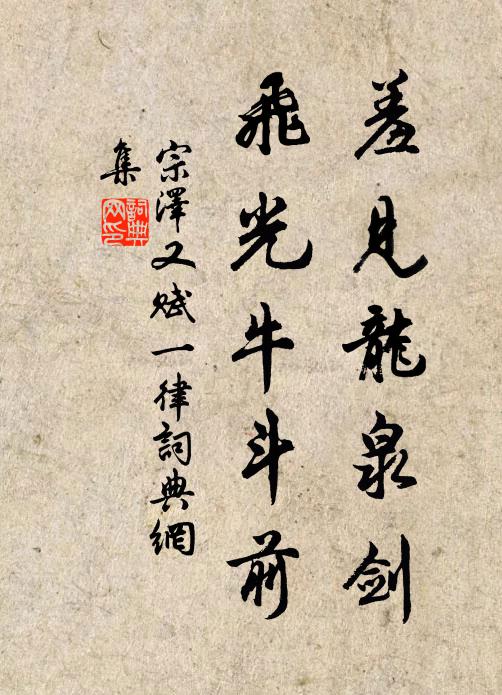 羞見龍泉剑
飛光牛斗前
宗澤又赋一律詞典網
集
詞典
网印